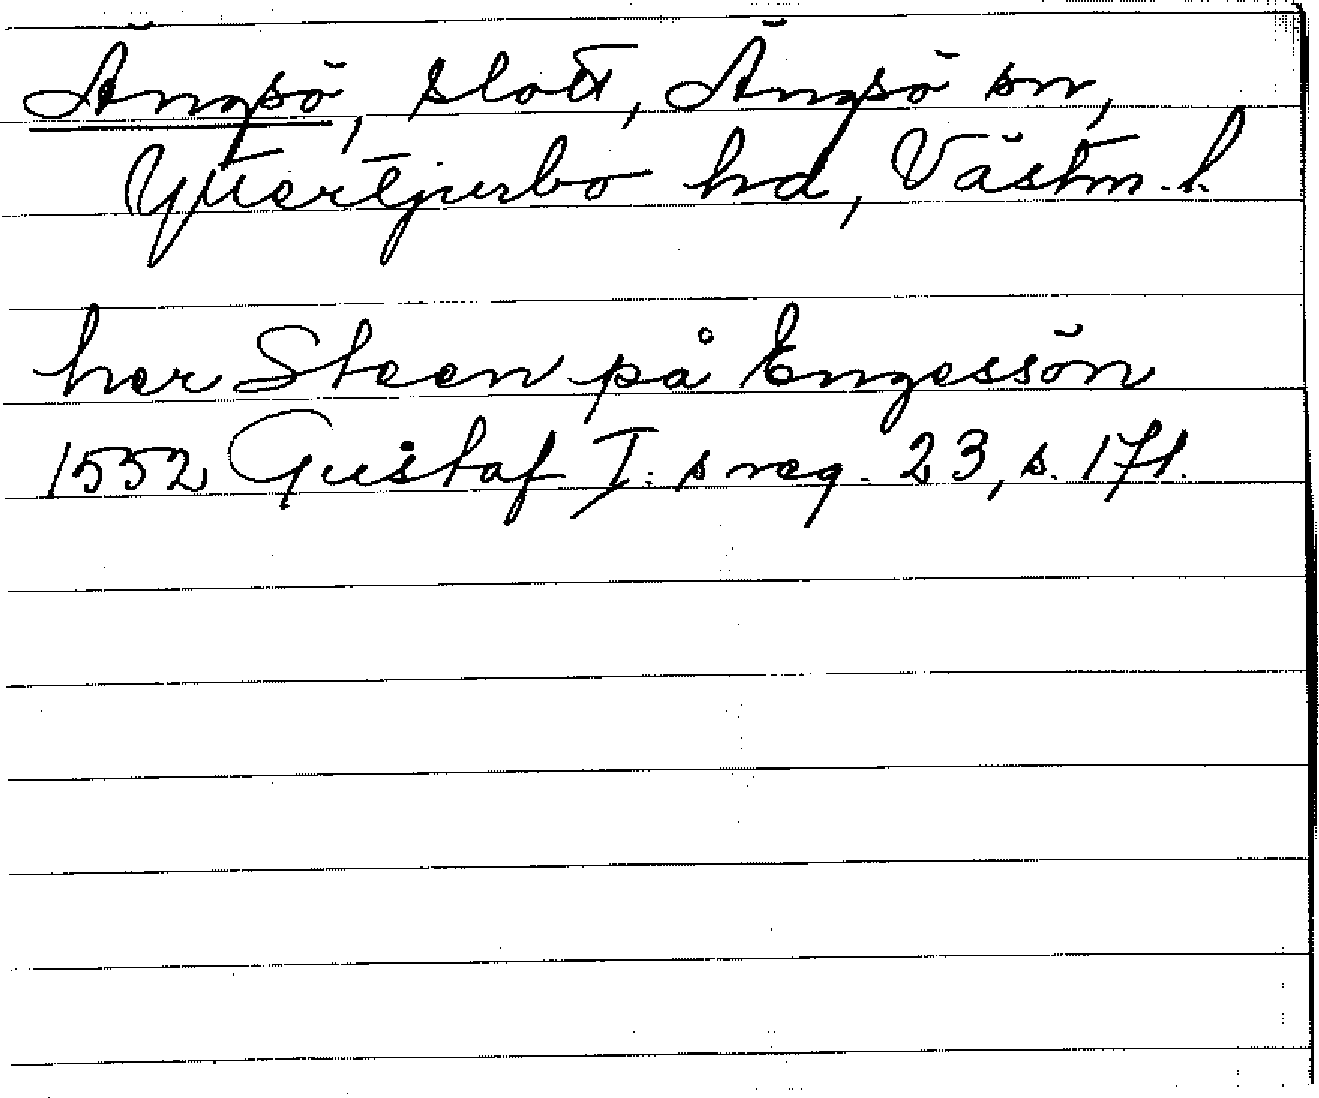 Ängsö, slott, Ängsö sn,
Yttertjurbo hd, Västm. l.
her Steen på Engessön
1552 Gustaf I: s reg. 23, s. 171.